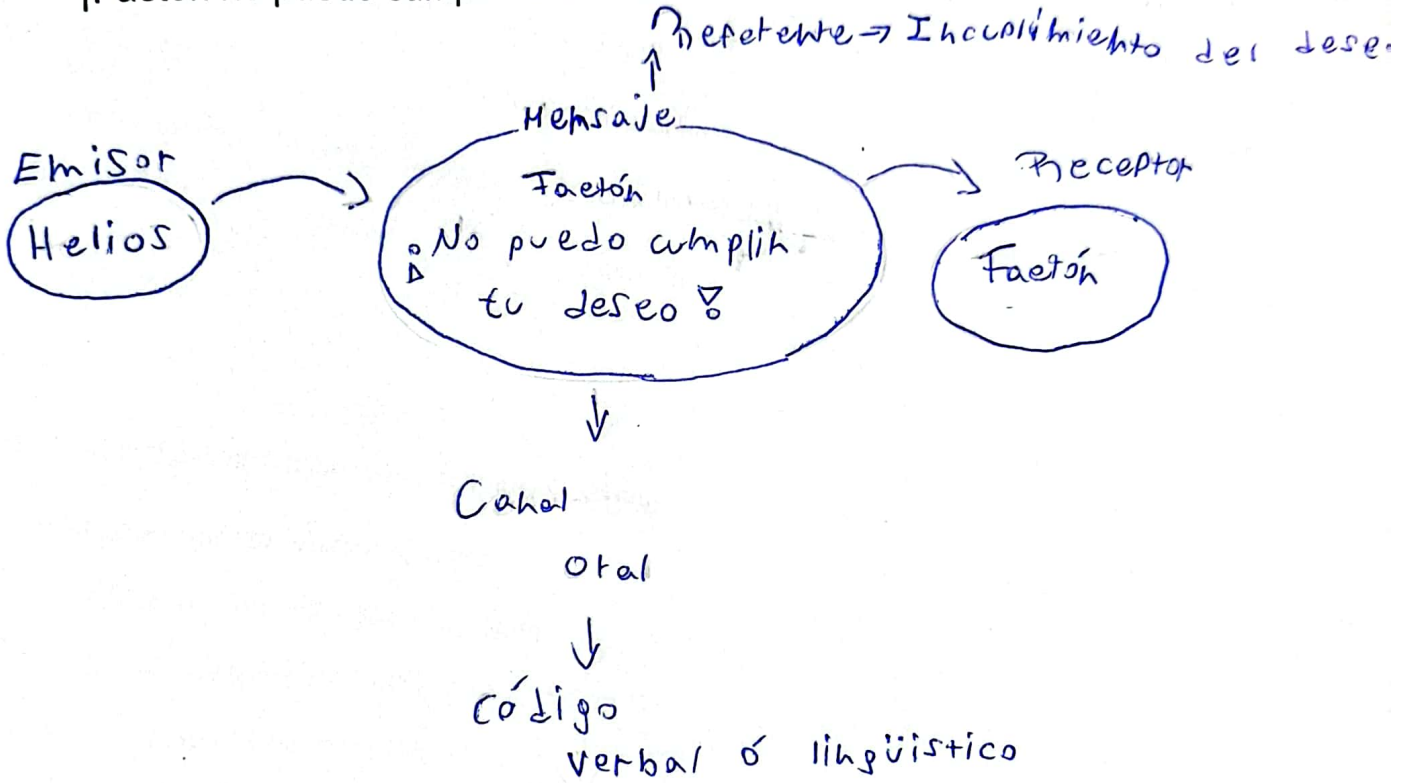 Referente → Incumplimiento del dese
Mensaje
Emisor
Receptor
Helios
Faetón
¡No puedo cumplir
tu deseo!
Faetón
Canal
oral
Código
verbal ó lingüístico